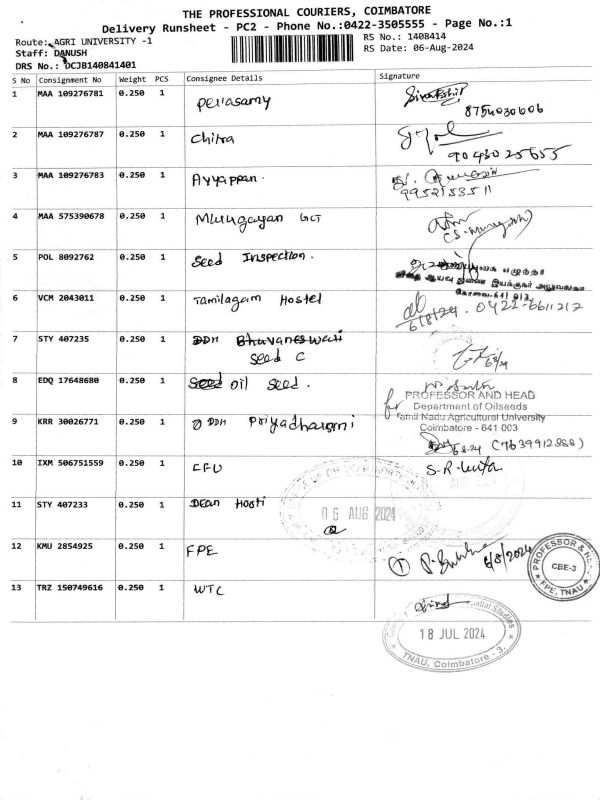 THE PROFESSIONAL COURIERS, COIMBATORE
Delivery Runsheet - PC2 - Phone No.:0422-3505555 - Page No.:1
Route: AGRI UNIVERSITY -1
RS No.: 1408414
Staff: DANUSH
RS Date: 06-Aug-2024
DRS No.: DCJB140841401
S No Consignment No Weight PCS Consignee Details Signature
1 MAA 109276781 0.250 1 Periasamy
8754030606
2 MAA 109276787 0.250 1 Chitra
90430 25655
3 MAA 109276783 0.250 1 Ayyappan.
9952153511
4 MAA 575390678 0.250 1 Murugayan GCT
5 POL 8092762 0.250 1 Seed Inspection.
கோவை-641 013
6 VCM 2043011 0.250 1 Tamilagam Hostel
6/8/24. 0422-6611217
7 STY 407235 0.250 1 DDH Bhuvaneswari
Seed C
8 EDQ 17648680 0.250 1 Seed oil Seed.
PROFESSOR AND HEAD
for Department of Oilseeds
Tamil Nadu Agricultural University
Coimbatore - 641 003
9 KRR 30026771 0.250 1 DDH Priyadharsini
6.8.24 (7639912888)
10 IXM 506751559 0.250 1 CFU
S-R-
11 STY 407233 0.250 1 Dean Horti
06 AUG 2024
12 KMU 2854925 0.250 1 FPE
6/8/2024
PROFESSOR & HEAD
CBE-3
FPE, TNAU
13 TRZ 150749616 0.250 1 WTC
18 JUL 2024
TNAU, Coimbatore - 3.